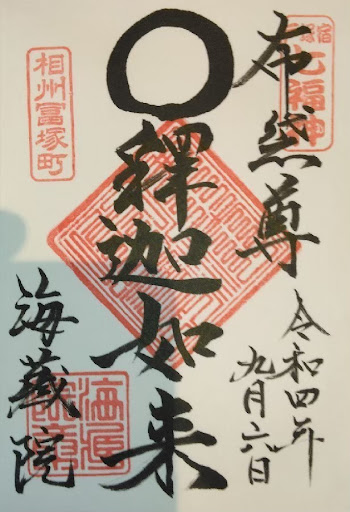 七福神
布袋尊
令和四年
九月六日
釋迦如来
相州富塚町
海蔵院